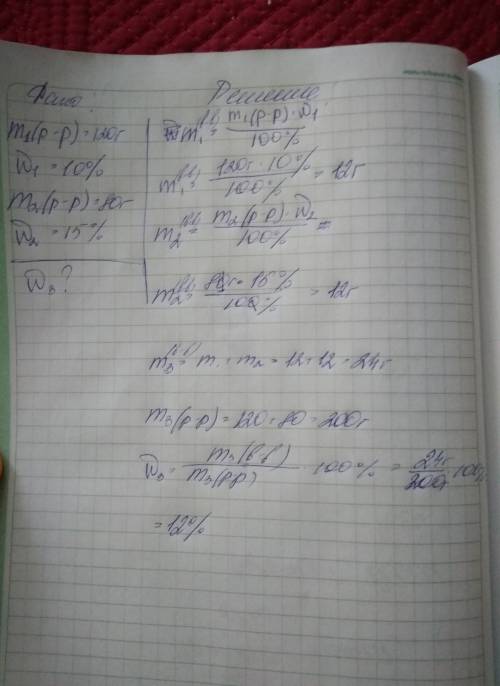 Дано:
m₁(р-р)=120г
W₁=10%
m₂(р-р)=80г
W₂=15%
W₃?
Решение
m₁(в.в)=m₁(р-р)·W₁/100%
m₁(в.в)=120г·10%/100%=12г
m₂(в.в)=m₂(р-р)·W₂/100%=
m₂(в.в)=80г·15%/100%=12г
m₃(в.в)=m₁+m₂=12+12=24г
m₃(р-р)=120+80=200г
W₃=m₃(в.в)/m₃(р.р)·100%=24г/200г·100%
=12%